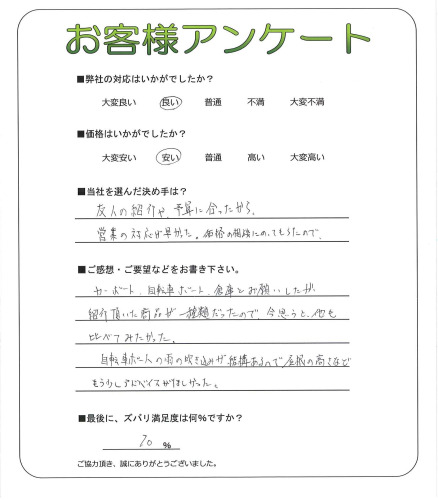 お客様アンケート
■弊社の対応はいかがでしたか？
大変良い 良い 普通 不満 大変不満
■価格はいかがでしたか？
大変安い 安い 普通 高い 大変高い
■当社を選んだ決め手は？
友人の紹介や、予算に合ったから。
営業の対応が早かった。価格の相談にのってもらたので、
■ご感想・ご要望などをお書き下さい。
カーポート、自転車ポート、倉庫とお願いしたが
紹介頂いた商品が一種類だったので、今思うと、他も
比べてみたかった。
自転車ポートへの雨の吹き込みが結構あるので屋根の高さなど
もう少しアドバイスがほしかった。
■最後に、ズバリ満足度は何%ですか？
70 %
ご協力頂き、誠にありがとうございました。